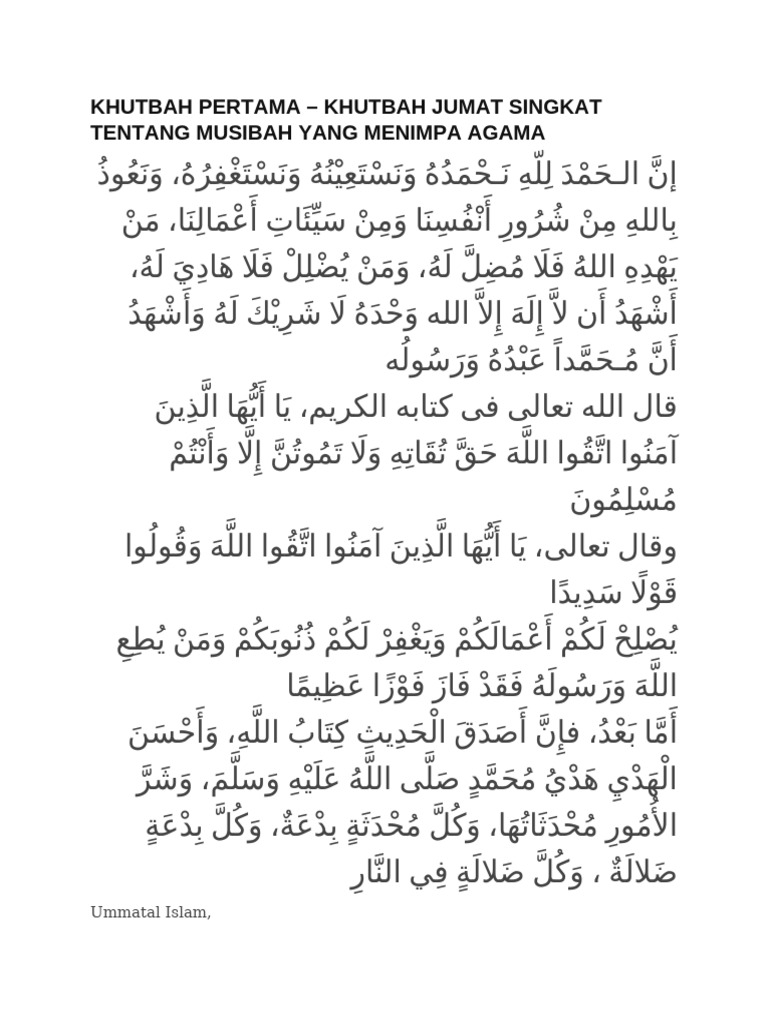 KHUTBAH PERTAMA – KHUTBAH JUMAT SINGKAT
TENTANG MUSIBAH YANG MENIMPA AGAMA
إنَّ الـحَمْدَ لِلّهِ نَـحْمَدُهُ وَنَسْتَعِيْنُهُ وَنَسْتَغْفِرُهُ، وَنَعُوذُ
بِاللهِ مِنْ شُرُورِ أَنْفُسِنَا وَمِنْ سَيِّئَاتِ أَعْمَالِنَا، مَنْ
يَهْدِهِ اللهُ فَلَا مُضِلَّ لَهُ، وَمَنْ يُضْلِلْ فَلَا هَادِيَ لَهُ،
أَشْهَدُ أَن لاَّ إِلَهَ إِلاَّ الله وَحْدَهُ لَا شَرِيْكَ لَهُ وَأَشْهَدُ
أَنَّ مُـحَمَّداً عَبْدُهُ وَرَسُولُه
قال الله تعالى فى كتابه الكريم، يَا أَيُّهَا الَّذِينَ
آمَنُوا اتَّقُوا اللَّهَ حَقَّ تُقَاتِهِ وَلَا تَمُوتُنَّ إِلَّا وَأَنْتُمْ
مُسْلِمُونَ
وقال تعالى، يَا أَيُّهَا الَّذِينَ آمَنُوا اتَّقُوا اللَّهَ وَقُولُوا
قَوْلًا سَدِيدًا
يُصْلِحْ لَكُمْ أَعْمَالَكُمْ وَيَغْفِرْ لَكُمْ ذُنُوبَكُمْ وَمَنْ يُطِعِ
اللَّهَ وَرَسُولَهُ فَقَدْ فَازَ فَوْزًا عَظِيمًا
أَمَّا بَعْدُ، فإِنَّ أَصَدَقَ الْحَدِيثِ كِتَابُ اللَّهِ، وَأَحْسَنَ
الْهَدْيِ هَدْيُ مُحَمَّدٍ صَلَّى اللَّهُ عَلَيْهِ وَسَلَّمَ، وَشَرَّ
الأُمُورِ مُحْدَثَاتُهَا، وَكُلَّ مُحْدَثَةٍ بِدْعَةٌ، وَكُلَّ بِدْعَةٍ
ضَلالَةٌ ، وَكُلَّ ضَلالَةٍ فِي النَّارِ
Ummatal Islam,